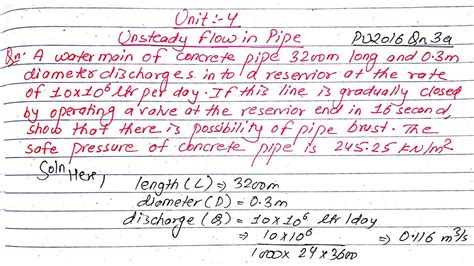 Unit:-4
Unsteady flow in Pipe PU2016 Qn 3a
Qn: A water main of concrete pipe 3200m long and 0.3m
diameter discharges in to a reservior at the rate
of 10x10⁶ ltr per day. If this line is gradually closed
by operating a valve at the reservior end in 16 second,
show that there is possibility of pipe brust. The
safe pressure of concrete pipe is 245.25 kN/m²
Soln Here,
length (L) ⇒ 3200m
diameter (D) = 0.3m
discharge (Q) = 10x10⁶ ltr/day
⇒ 10x10⁶ ⇒ 0.116 m³/s
1000x 24x3600